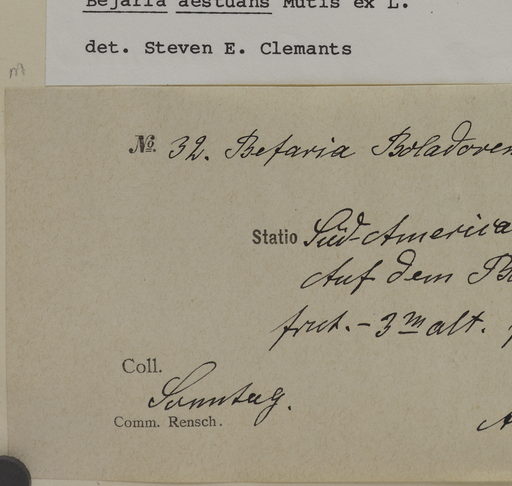 Bejaria aestuans Mutis ex L.
det. Steven E. Clemants
No. 32. Befaria Boladoren
Statio Süd-America
Auf dem
frut. - 3 m alt.
Coll.
Sonntag.
Comm. Rensch.